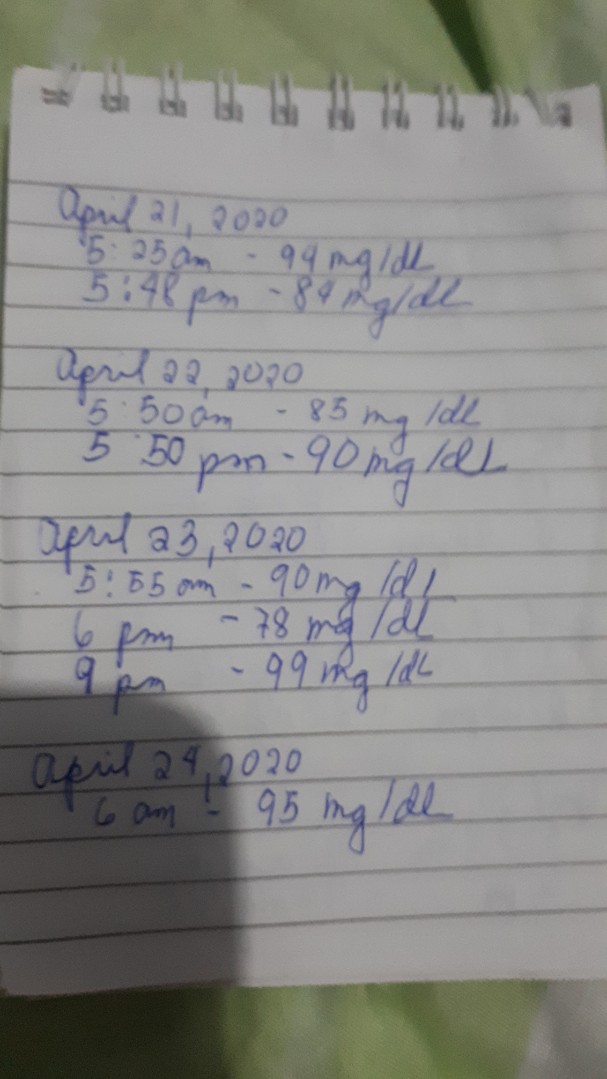 April 21, 2020
5:25 am - 94 mg/dl
5:48 pm - 84 mg/dL
April 22, 2020
5:50 am - 85 mg/dl
5:50 pm - 90 mg/dL
April 23, 2020
5:55 am - 90 mg/dl
6 pm - 78 mg/dl
9 pm - 99 mg/dL
April 24, 2020
6 am - 95 mg/dl